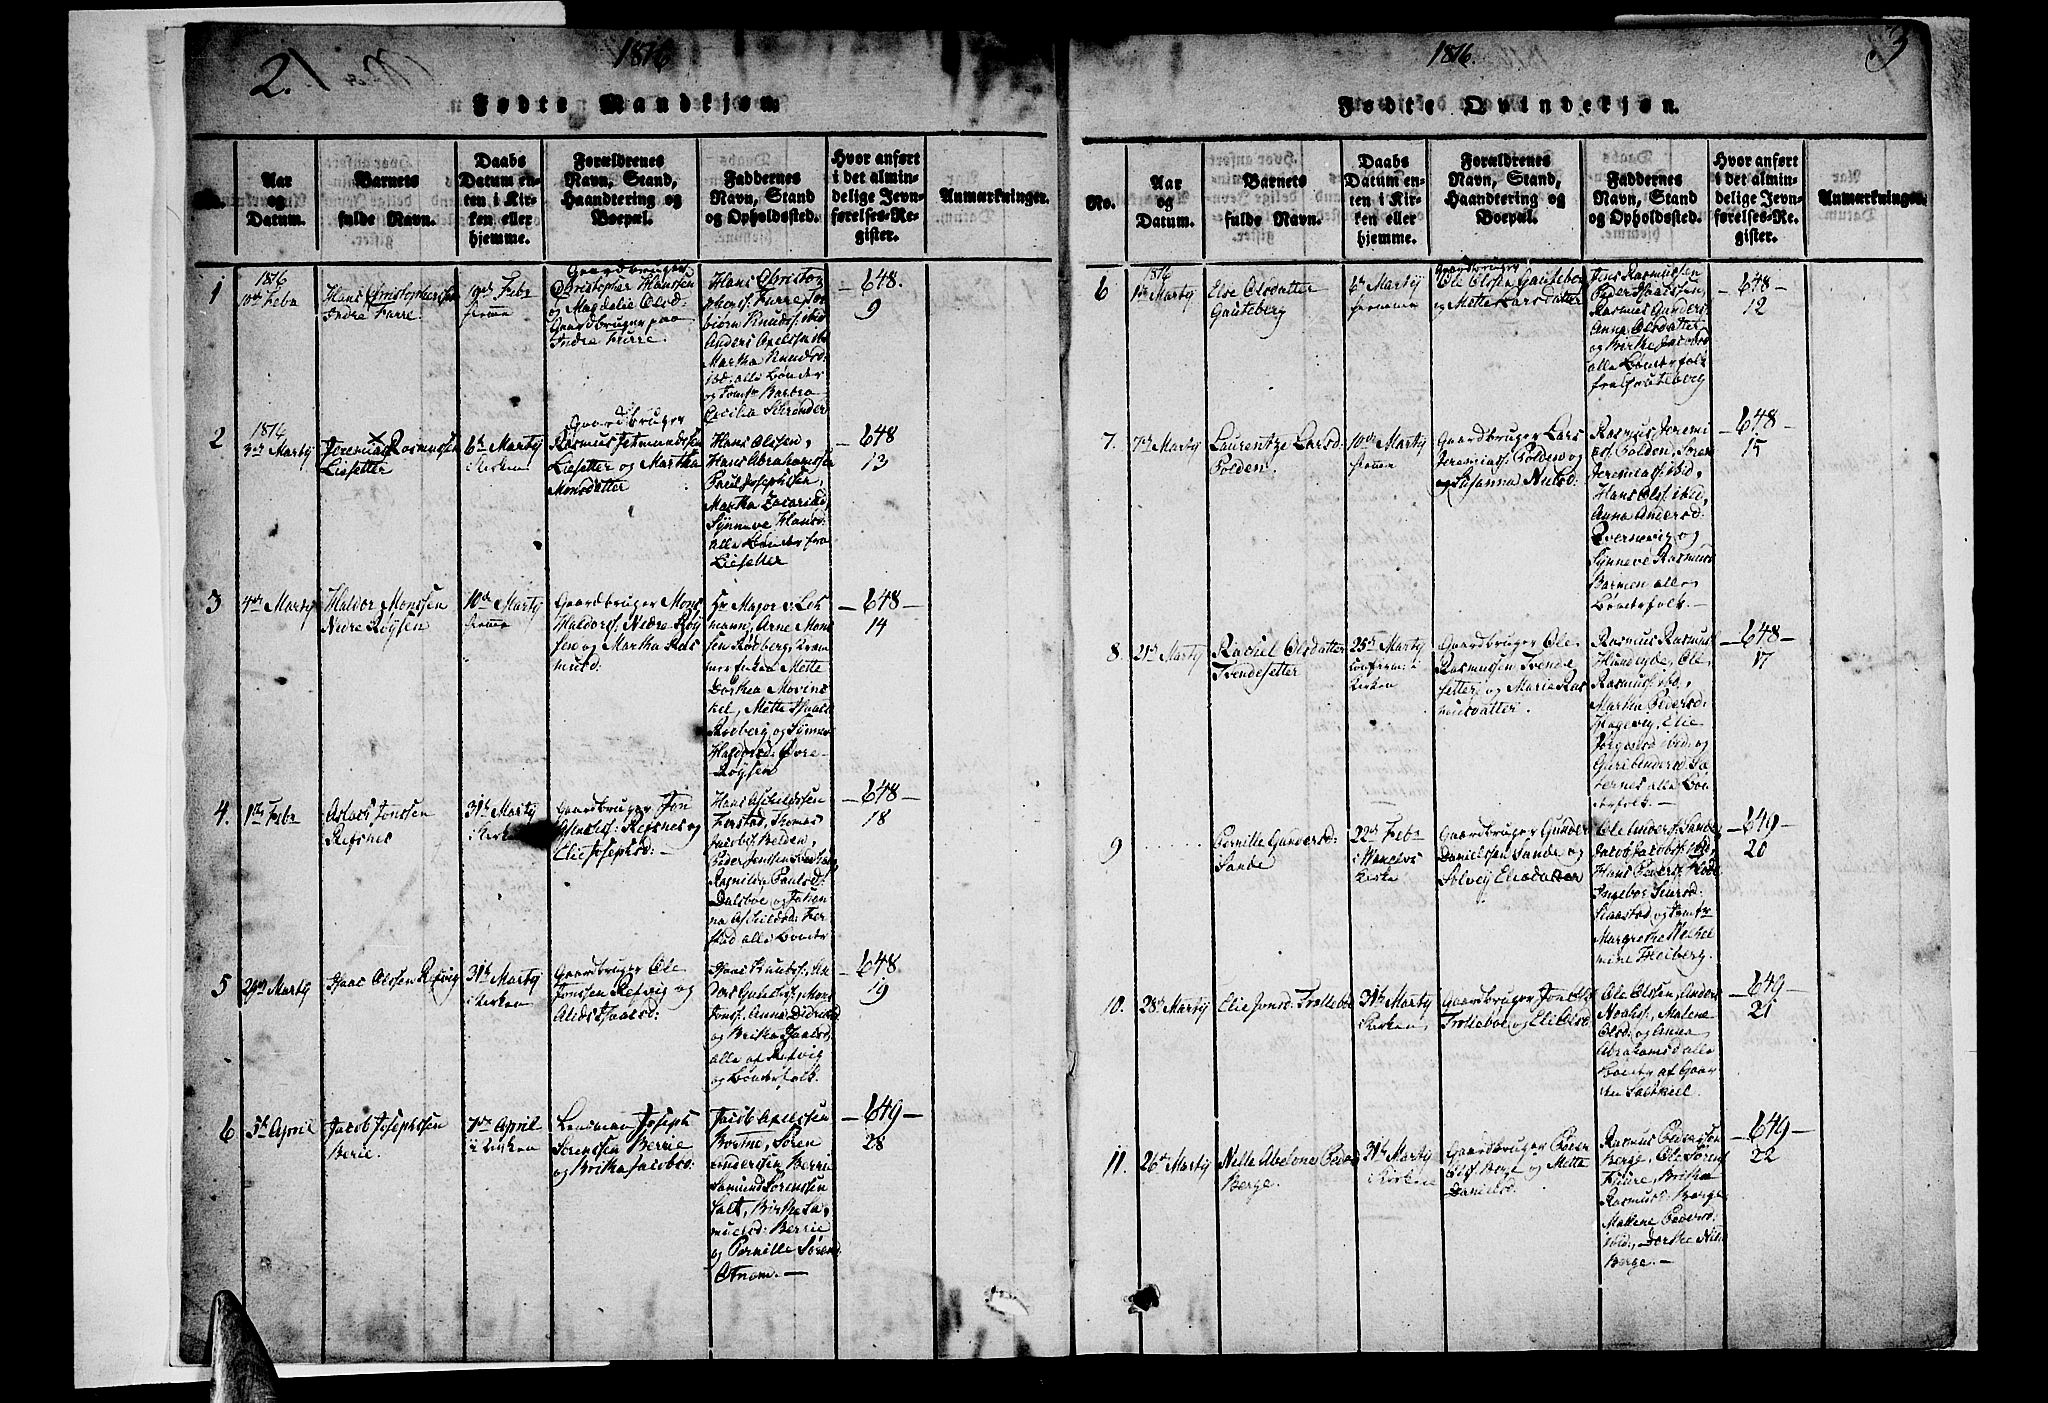 2.
1816
Fødte Mandkjøn.
Aar
og
Datum.
Barnets
fulde Navn.
Daabs
Datum en-
ten i Kir-
ken eller
hjemme.
Forældrenes
Navn, Stand,
Haandtering og
Boepæl.
Faddernes
Navn, Stand
og Opholdssted.
Hvor anført
i det almin-
delige Jevn-
førelses-Re-
gister.
Anmærkninger.
1
1816
Febr
Hans Christophersen
Indre Furre.
Febr
Gaardbruger
Christopher Hanssen
og Magdalie Olsd:
Gaardbruger paa
Indre Furre.
Hans Christop
Furre, Tor
biørn Knuds: ibid
Anders Axelssen ibd
Martha Knudsd:
ibd: alle Bønder
og Barbra
Cecilia Schrøder
648.
9
2
1816
3die Martij
Jeremias Rasmussen
Liesetter
6te Martij
i Kirken
Gaardbruger
Rasmus Jetmundssen
Liesetter og Martha
Monsdatter
Hans Olssen,
Hans Abrahamssen
Paul Josephssen,
Martha Zacariad,
Synneve Hansd:
alle Bønder fra
Liesetter
648
13
3
4de Martij
Haldor Monssen
Nedre Røysen
10de Martij
Gaardbruger Mons
Haldors: Nedre Røy
sen og Martha Ras
musd:
Hr Major v: Leh
mann, Arne Mons
sen Rødberg,
Mette
Dorthea
Mette Isaacs
Rødberg og Synnev
Haldorsd: Øvre
Røysen
648
14
4.
Febr
Aslacs Jonssen
Refsnes
31te Martij
i Kirken
Gaardbruger Jon
Refsnes og
Elie Josephsd:
Hans Aschildssen
Ferstad, Thomas
Jacobs:
Peder Jenssen
Ragnilda Paulsd:
Dalsboe og Johan
na Aschildsd: Fer
stad alle Bønder
648
18
5
29de Martij
Isaac Olssen Refvig
31te Martij
i Kirken
Gaardbruger Ole
Jonssen Refvig og
Alids Isaacsd:
Isaac Knuds:, An
ders Mons
Jons:, Anna Didriksd
og Britha Isaacsd,
alle af Refvig
og Bønderfolk.
648.
19
6
5te April
Jacob Josephssen
Berie.
7de April
i Kirken
Lensman Joseph
Sørenssen Berrie
og Britha Jacobsd:
Jacob Axelssen
Søren
Anderssen Berrie
Samund Sørenssen
Salt, Birthe Sa
muelsd: Berrie
og Pernille Sørensd
Otnæm.
649
28
3
1816.
Fødte Qvindekjøn.
No.
Aar
og
Datum.
Barnets
fulde Navn.
Daabs
Datum en-
ten i Kir-
ken eller
hjemme.
Forældrenes
Navn, Stand,
Haandtering og
Boepæl.
Faddernes
Navn, Stand
og Opholdssted.
Hvor anført
i det almin-
delige Jevn-
førelses-Re-
gister.
Anmærkninger.
6
1816
1ste Martij
Else Olsdatter
Gauteberg
6te Martij
Gaardbruger
Ole Olssen Gauteber
og Mette Larsdatter
Jens Rasmussen
Peder Isaacssen,
Rasmus Gunders:
Anna Olsdatter
og Birthe Jacobsd
alle Bønderfolk
fra Gauteberg
648
12
7.
7de Martij
Laurentze Larsd:
Polden.
10de Martij
Gaardbruger Lars
Jeremiass: Polden og
Susanna Nielsd:
Rasmus Jeremi
ass: Polden, Søren
Jeremiass: ibid
Hans Ols: ibid,
Anna Andersd:
og
Synneve Rasmusd
Barmen alle
Bønderfolk.
648
15
8.
21de Martij
Rachel Olsdatter
Tvendesetter
25de Martij
i
Kirken
Gaardbruger Ole
Rasmussen Tvende
setter, og Marie Ras
musdatter.
Rasmus Rasmus
Hundeyde, Ole
Rasmuss: ibd,
Martha Peders:
Hagevig, Elie
ibid: og
Guri Andersd:
alle Bøn
derfolk.
648
17
9
Pernille Gundersd:
Sande
22de Febr
i
Kirke
Gaardbruger Gunder
Danielssen Sande og
Solveij Eliasdatter
Ole Anders: Sande
Jacob Jacobs: ibid,
Hans Peders: Hode
Ingebor Siursd:
og
Margrethe Wilhel
mine Frieberg.
649
20
10.
28de Martij
Elie Jonsd: Trolleboe
31te Martij
i Kirken
Gaardbruger Jon Ols
Trolleboe og Eli Olsd
Ole Olssen, Anders
Noahs:, Malene
Olsd: og Anna
Abrahamsd alle
Bønder af Gaar
den Saltkiel.
649
21
11.
26de Martij
Nilla Abelone Pedersd
Berge.
31te Martij
i Kirken
Gaardbruger Peder
Ols: Berge og Mette
Danielsd.
Rasmus Pederssøn
Berge, Ole Sørens
Furre, Britha
Rasmusd: Berge
Mallene Pedersd:
ibid:, Dorthe Niels
Berge.
649
22